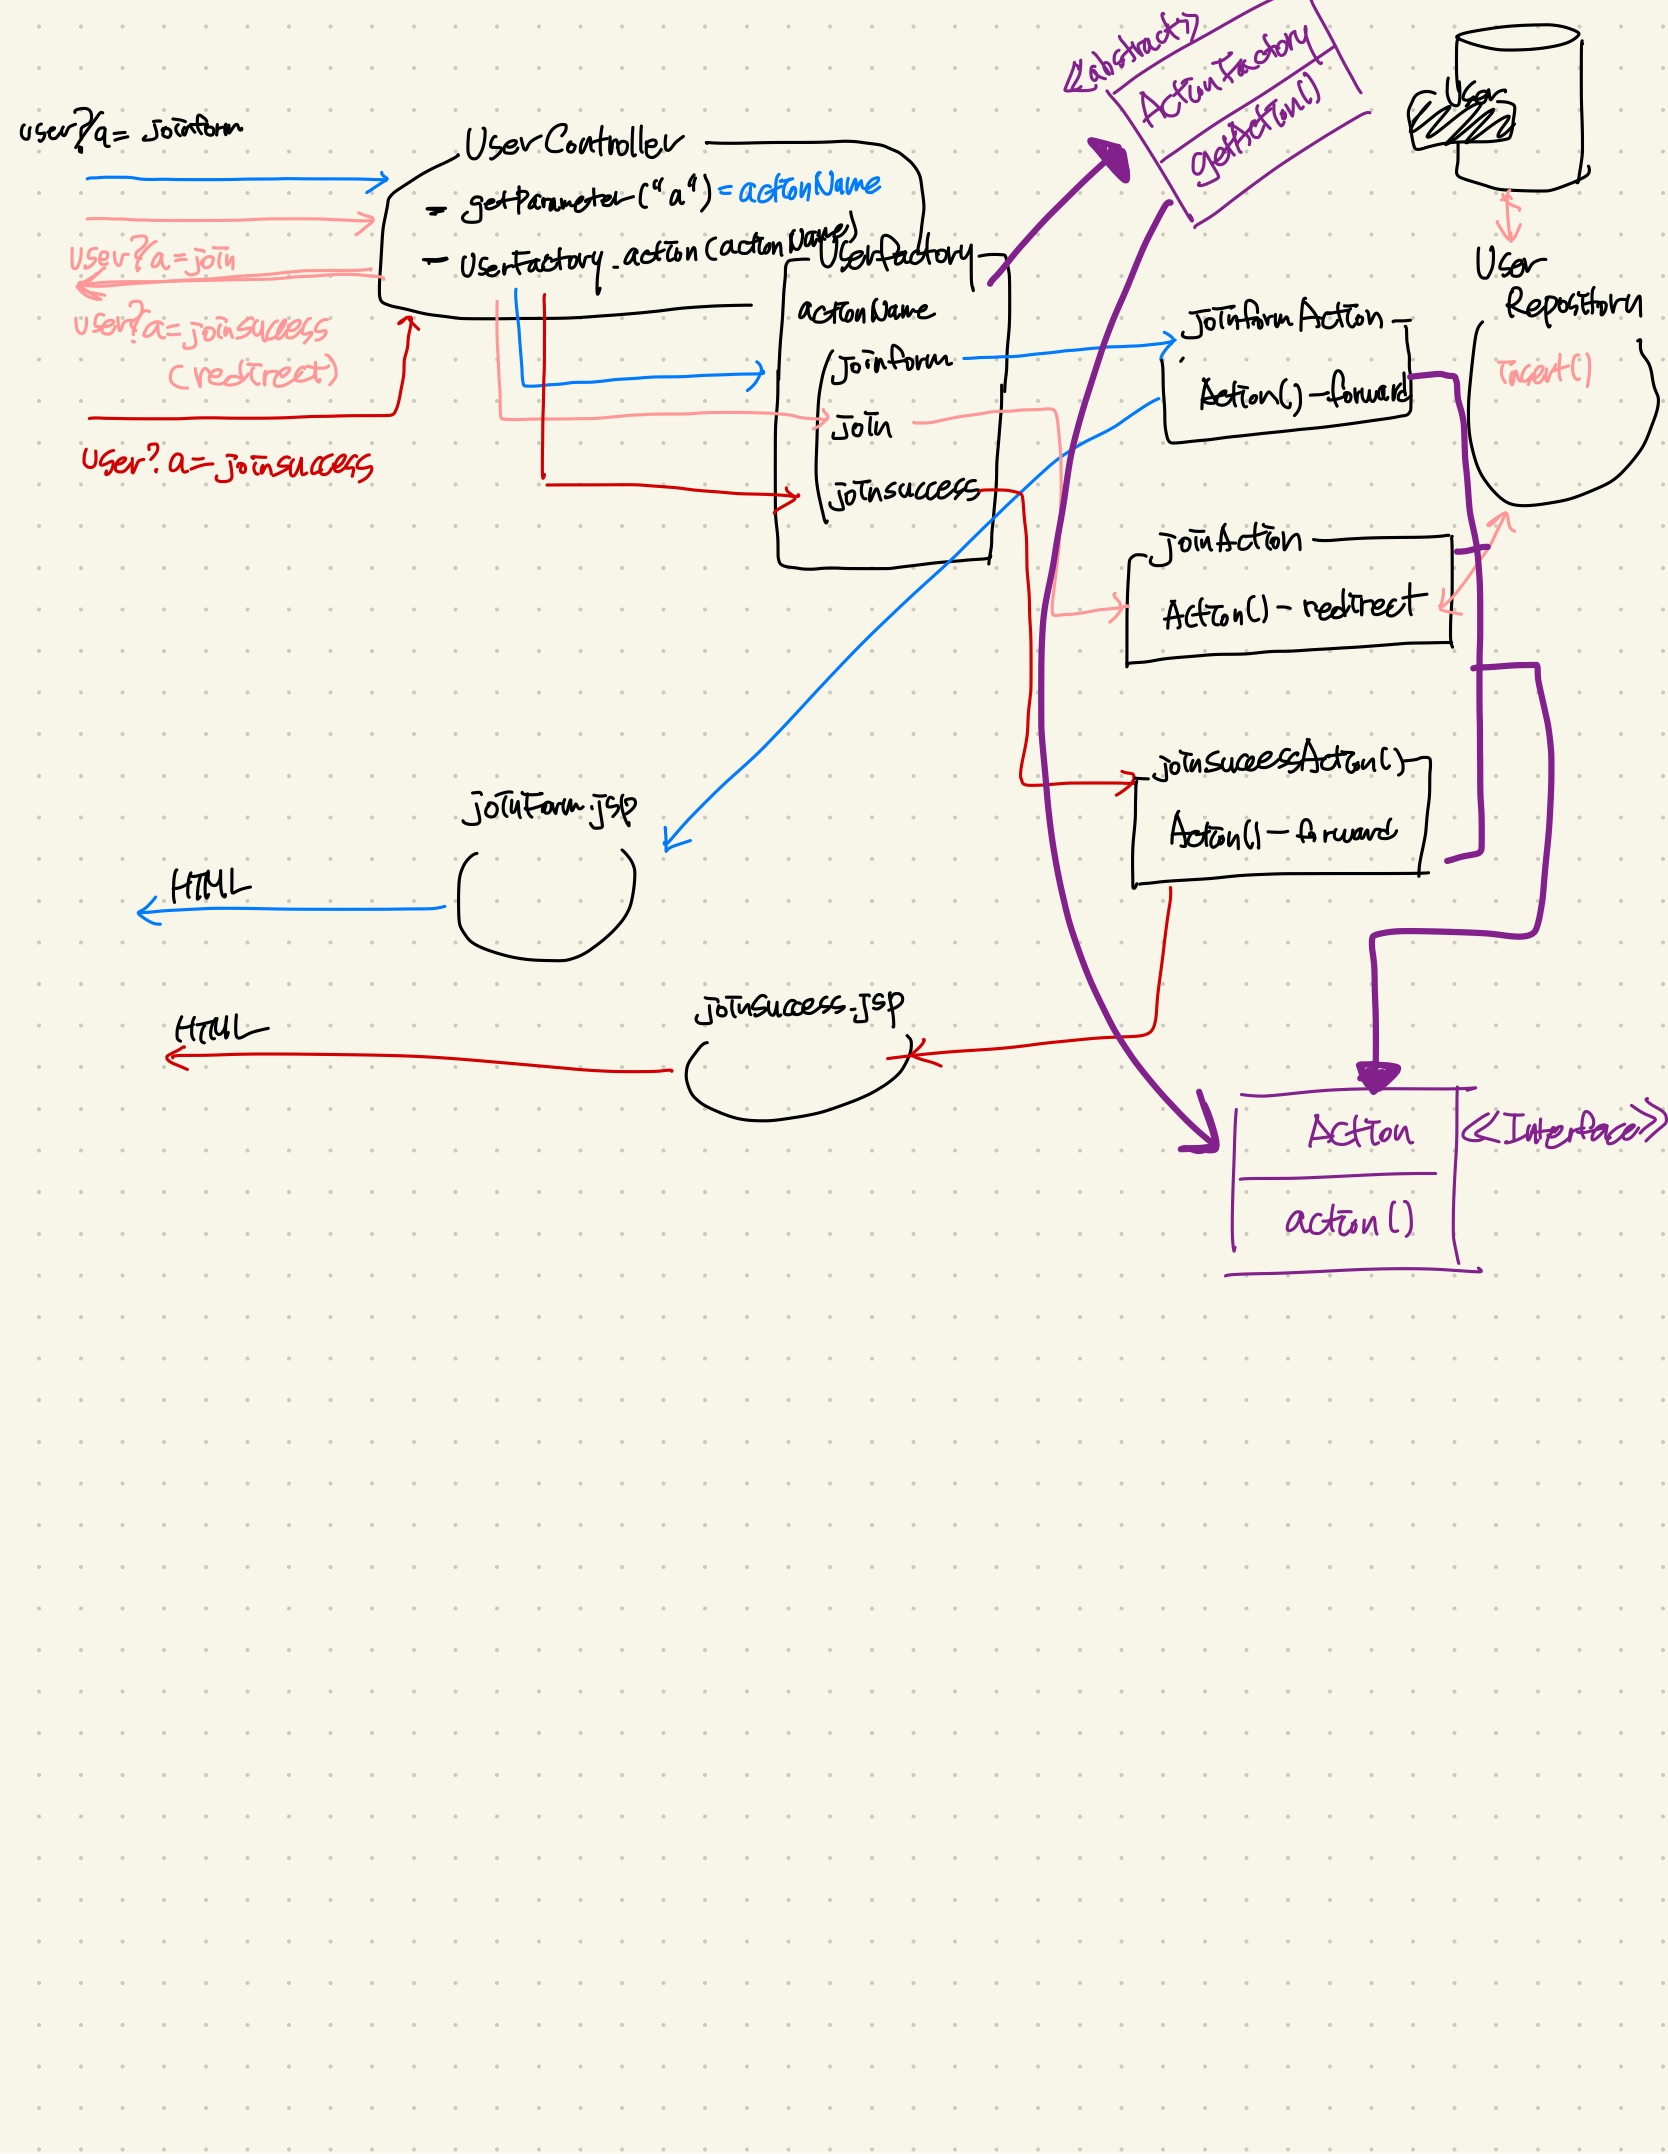 user?a= joinform
User?a=join
user?a=joinsuccess
(redirect)
User?.a=joinsuccess
UserController
- getParameter("a") = actionName
- UserFactory.action(actionName)
Userfactory
actionName
joinform
join
joinsuccess
<<abstract>>
ActionFactory
getAction()
User
User
Repository
insert()
joinformAction
Action()-forward
joinAction
Action()-redirect
joinsuccessAction()
Action()-forward
joinForm.jsp
HTML
joinsuccess.jsp
HTML
Action
<<Interface>>
action()